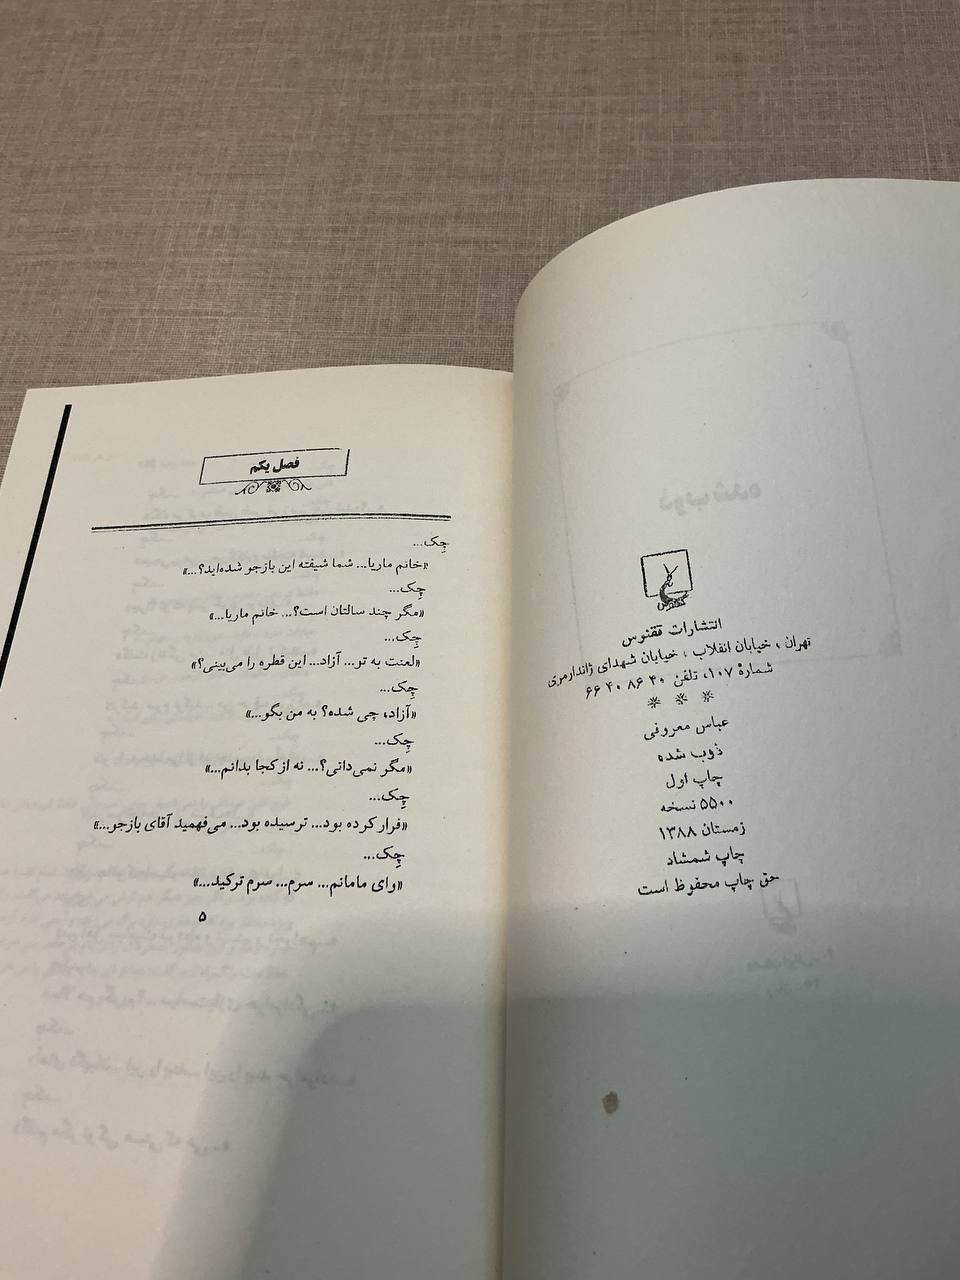 ققنوس
انتشارات ققنوس
تهران، خیابان انقلاب، خیابان شهدای ژاندارمری
شمارهٔ ۱۰۷، تلفن ۴۰ ۸۶ ۴۰ ۶۶
* * *
عباس معروفی
ذوب شده
چاپ اول
۵۵۰۰ نسخه
زمستان ۱۳۸۸
چاپ شمشاد
حق چاپ محفوظ است
فصل یکم
چِک...
«خانم ماریا... شما شیفته این بازجو شده‌اید؟...»
چِک...
«مگر چند سالتان است؟... خانم ماریا...»
چِک...
«لعنت به تو... آزاد... این قطره را می‌بینی؟»
چِک...
«آزاد، چی شده؟ به من بگو...»
چِک...
«مگر نمی‌دانی؟... نه از کجا بدانم...»
چِک...
«فرار کرده بود... ترسیده بود... می‌فهمید آقای بازجو...»
چِک...
«وای مامانم... سرم... سرم ترکید...»
۵